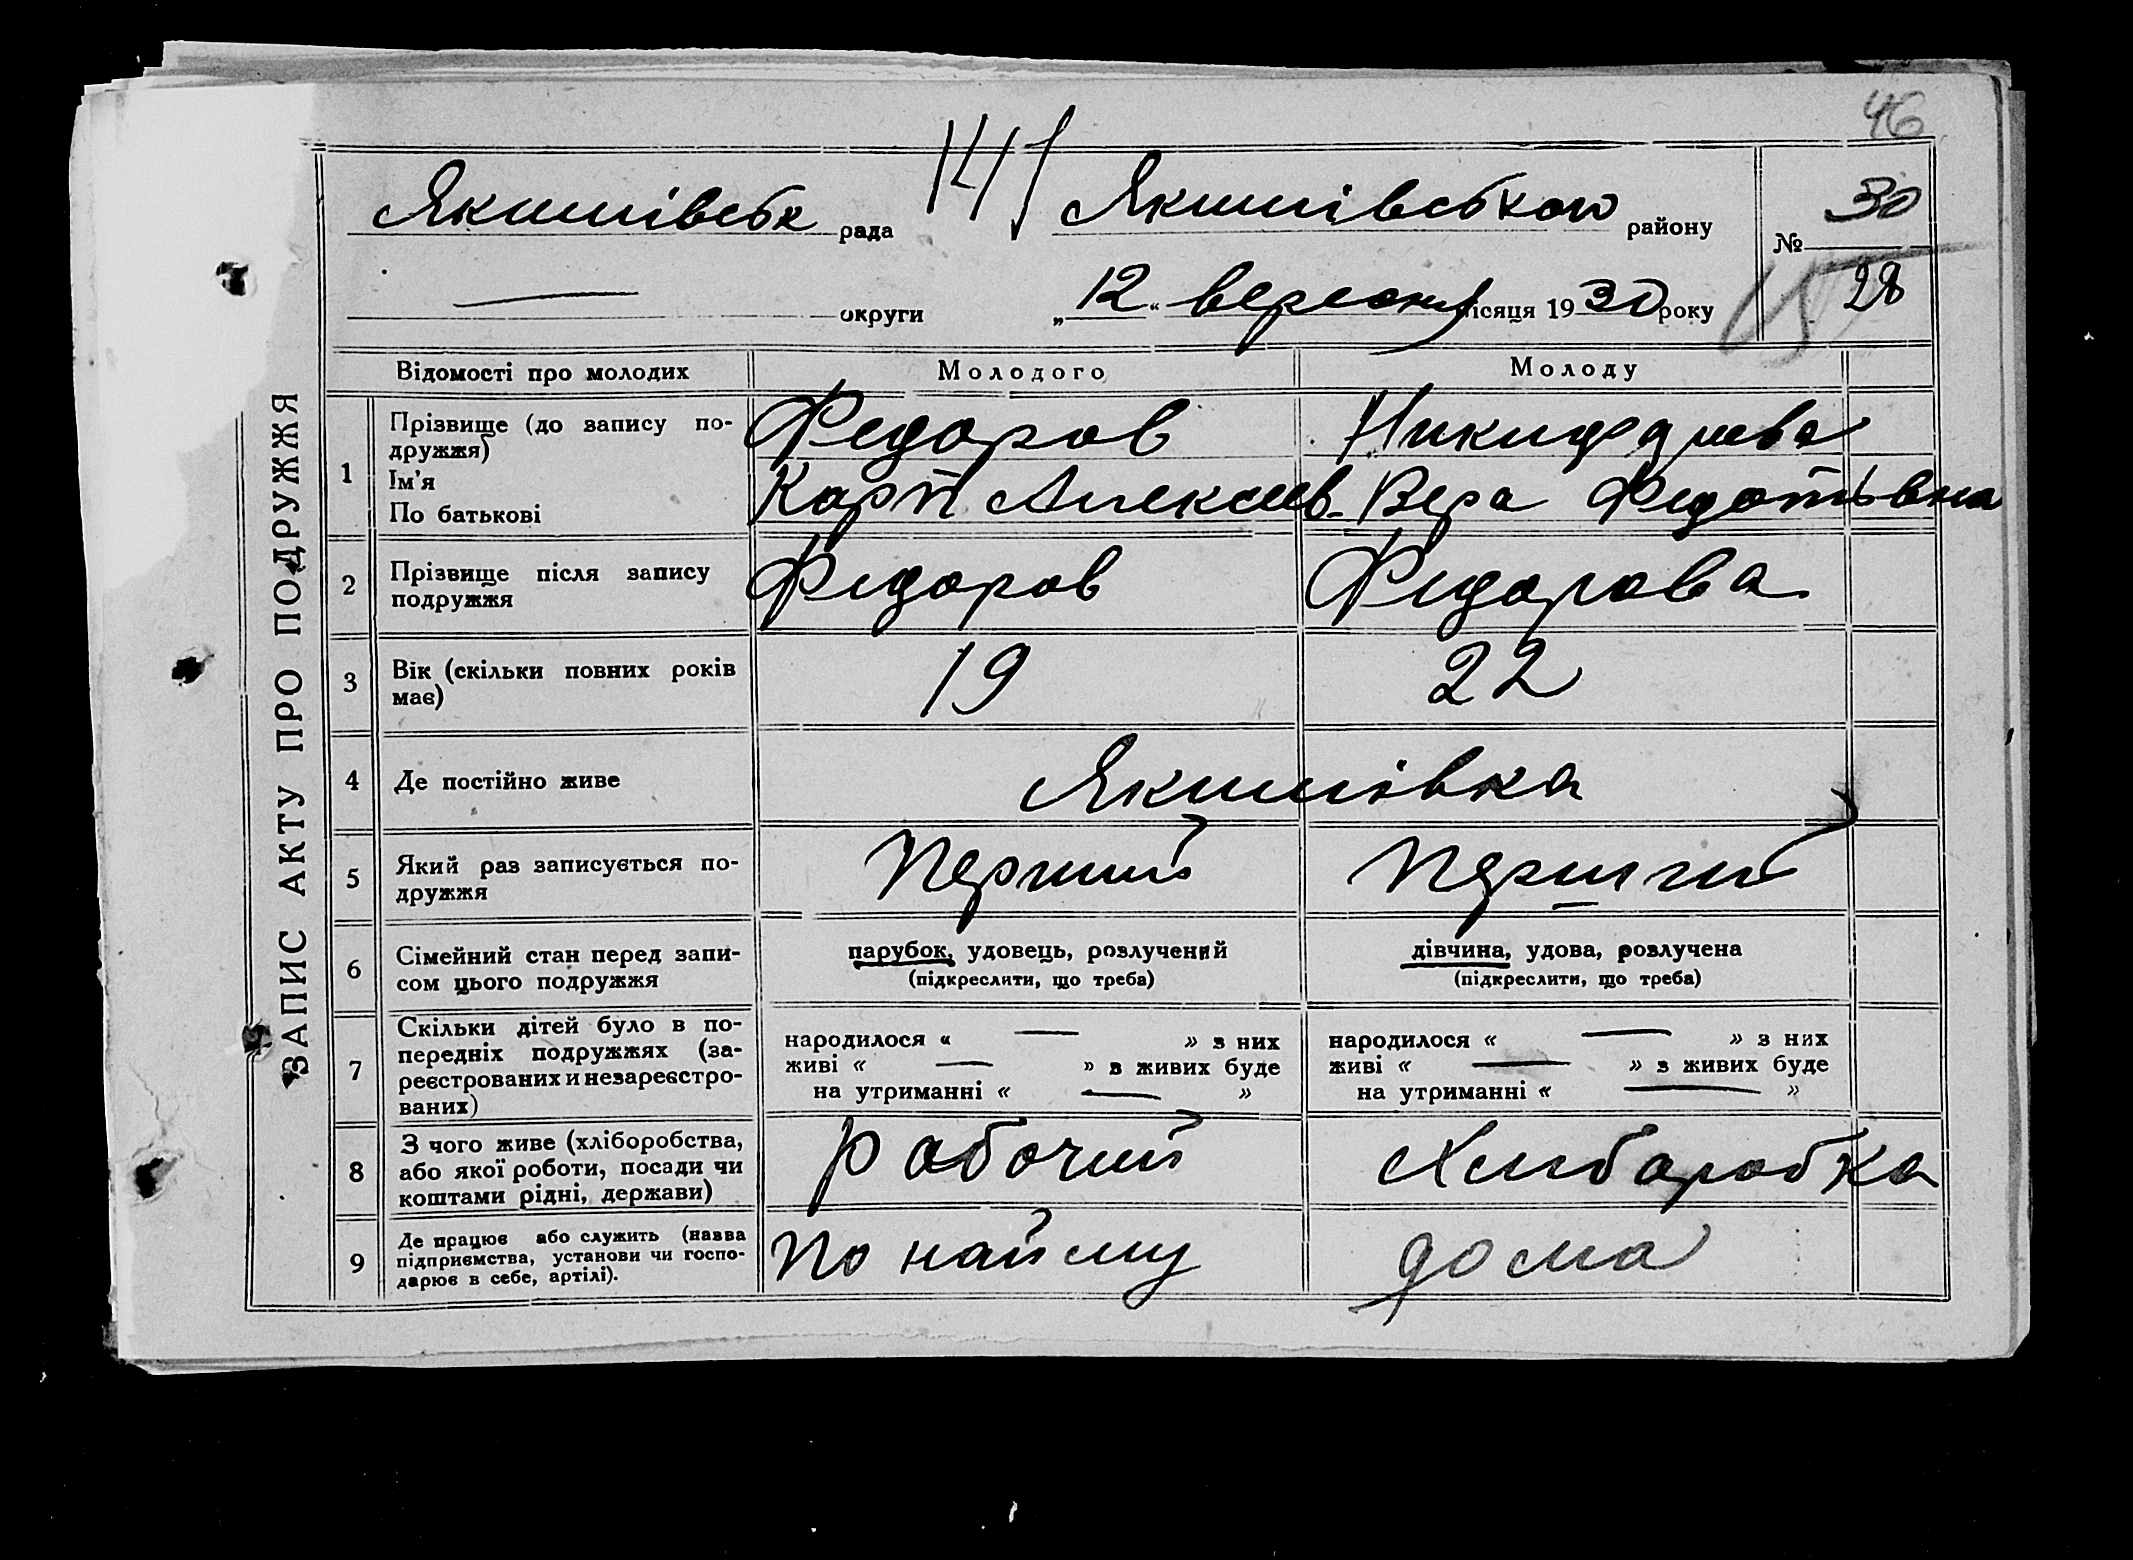 46
141
Якимівськ рада Якимівського району № 30
округи „12“ вересня місяця 1930 року 28
ЗАПИС АКТУ ПРО ПОДРУЖЖЯ
Відомості про молодих Молодого Молоду
1 Прізвище (до запису по-
дружжя) Федоров
Ім'я Карп Алексеев. Вера Федотьвна
По батькові
2 Прізвище після запису
подружжя Федоров Федорова
3 Вік (скільки повних років
має) 19 22
4 Де постійно живе Якимівка
5 Який раз записується по-
дружжя Перший Перший
6 Сімейний стан перед запи-
сом цього подружжя
парубок, удовець, розлучений
(підкреслити, що треба)
дівчина, удова, розлучена
(підкреслити, що треба)
7 Скільки дітей було в по-
передніх подружжях (за-
реєстрованих и незареєстро-
ваних)
народилося « — » з них
живі « — » з живих буде
на утриманні « — »
народилося « — » з них
живі « — » з живих буде
на утриманні « — »
8 З чого живе (хліборобства,
або якої роботи, посади чи
коштами рідні, держави)
Рабочий Хлиборобка
9 Де працює або служить (назва
підприємства, установи чи госпо-
дарює в себе, артілі).
По найму дома